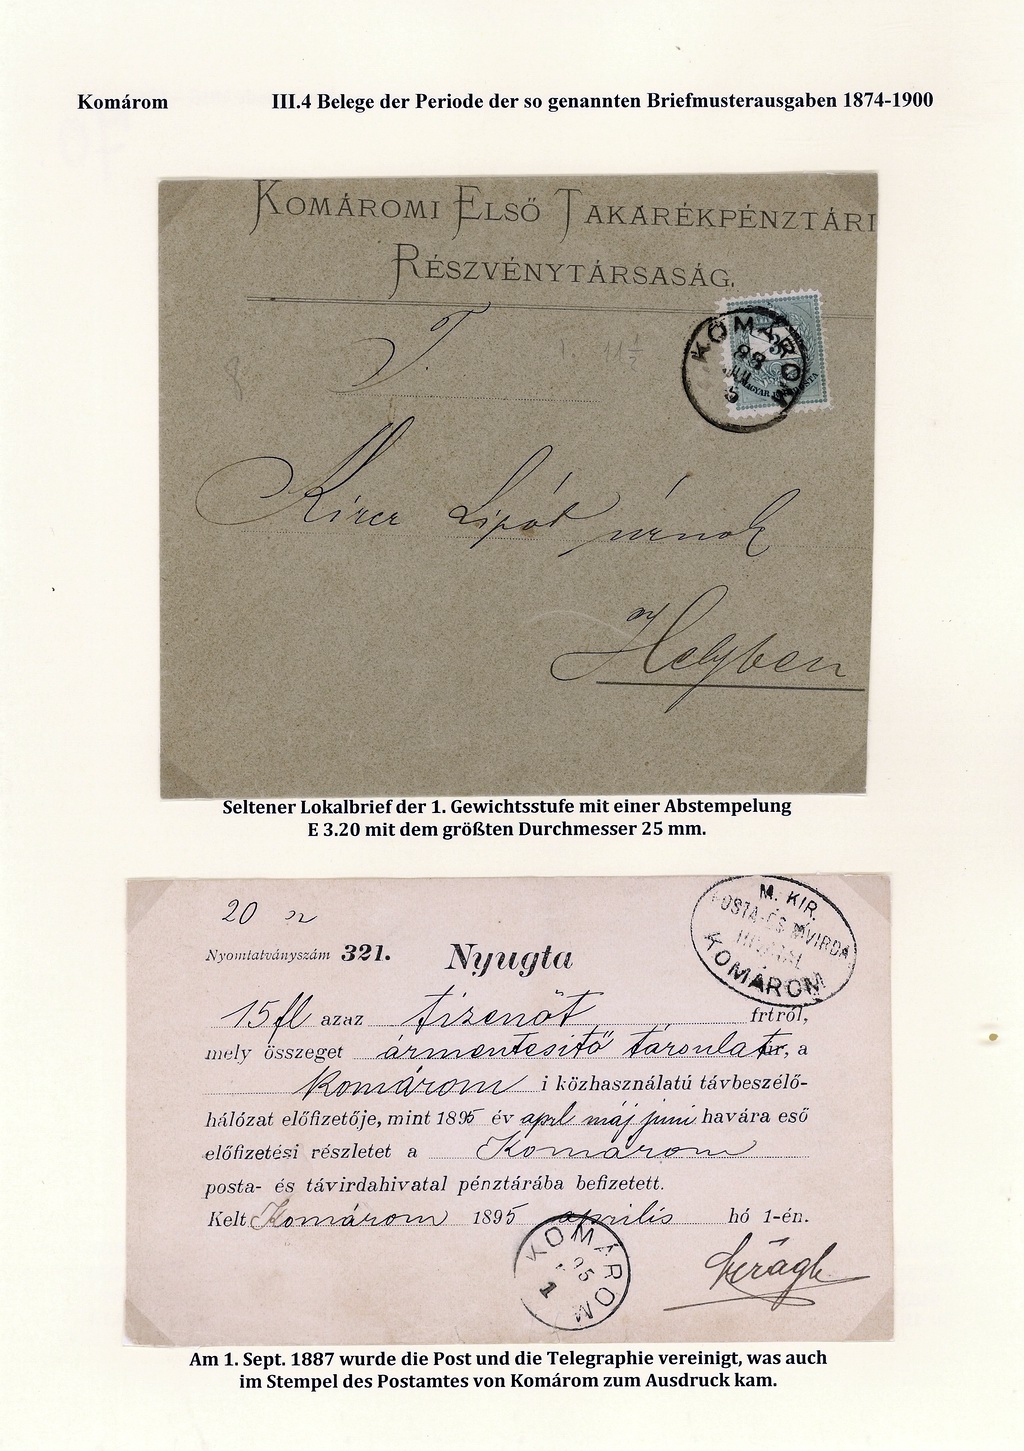 Komárom III.4 Belege der Periode der so genannten Briefmusterausgaben 1874-1900
KOMÁROMI ELSŐ TAKARÉKPÉNZTÁRI
RÉSZVÉNYTÁRSASÁG.
T.
KOMÁROM
88
JUL
5
Lipót úrnak
Helyben
Seltener Lokalbrief der 1. Gewichtsstufe mit einer Abstempelung
E 3.20 mit dem größten Durchmesser 25 mm.
20
M. KIR.
POSTA-ÉS TÁVIRDA
HIVATAL
KOMÁROM
Nyomtatványszám 321. Nyugta
15 fl azaz tizenöt frtról,
mely összeget ármentesítő társulat úr, a
Komárom i közhasználatú távbeszélő-
hálózat előfizetője, mint 1895 év april máj juni havára eső
előfizetési részletet a Komárom
posta- és távirdahivatal pénztárába befizetett.
Kelt Komárom 1895 aprilis hó 1-én.
KOMÁROM
95
1
Am 1. Sept. 1887 wurde die Post und die Telegraphie vereinigt, was auch
im Stempel des Postamtes von Komárom zum Ausdruck kam.